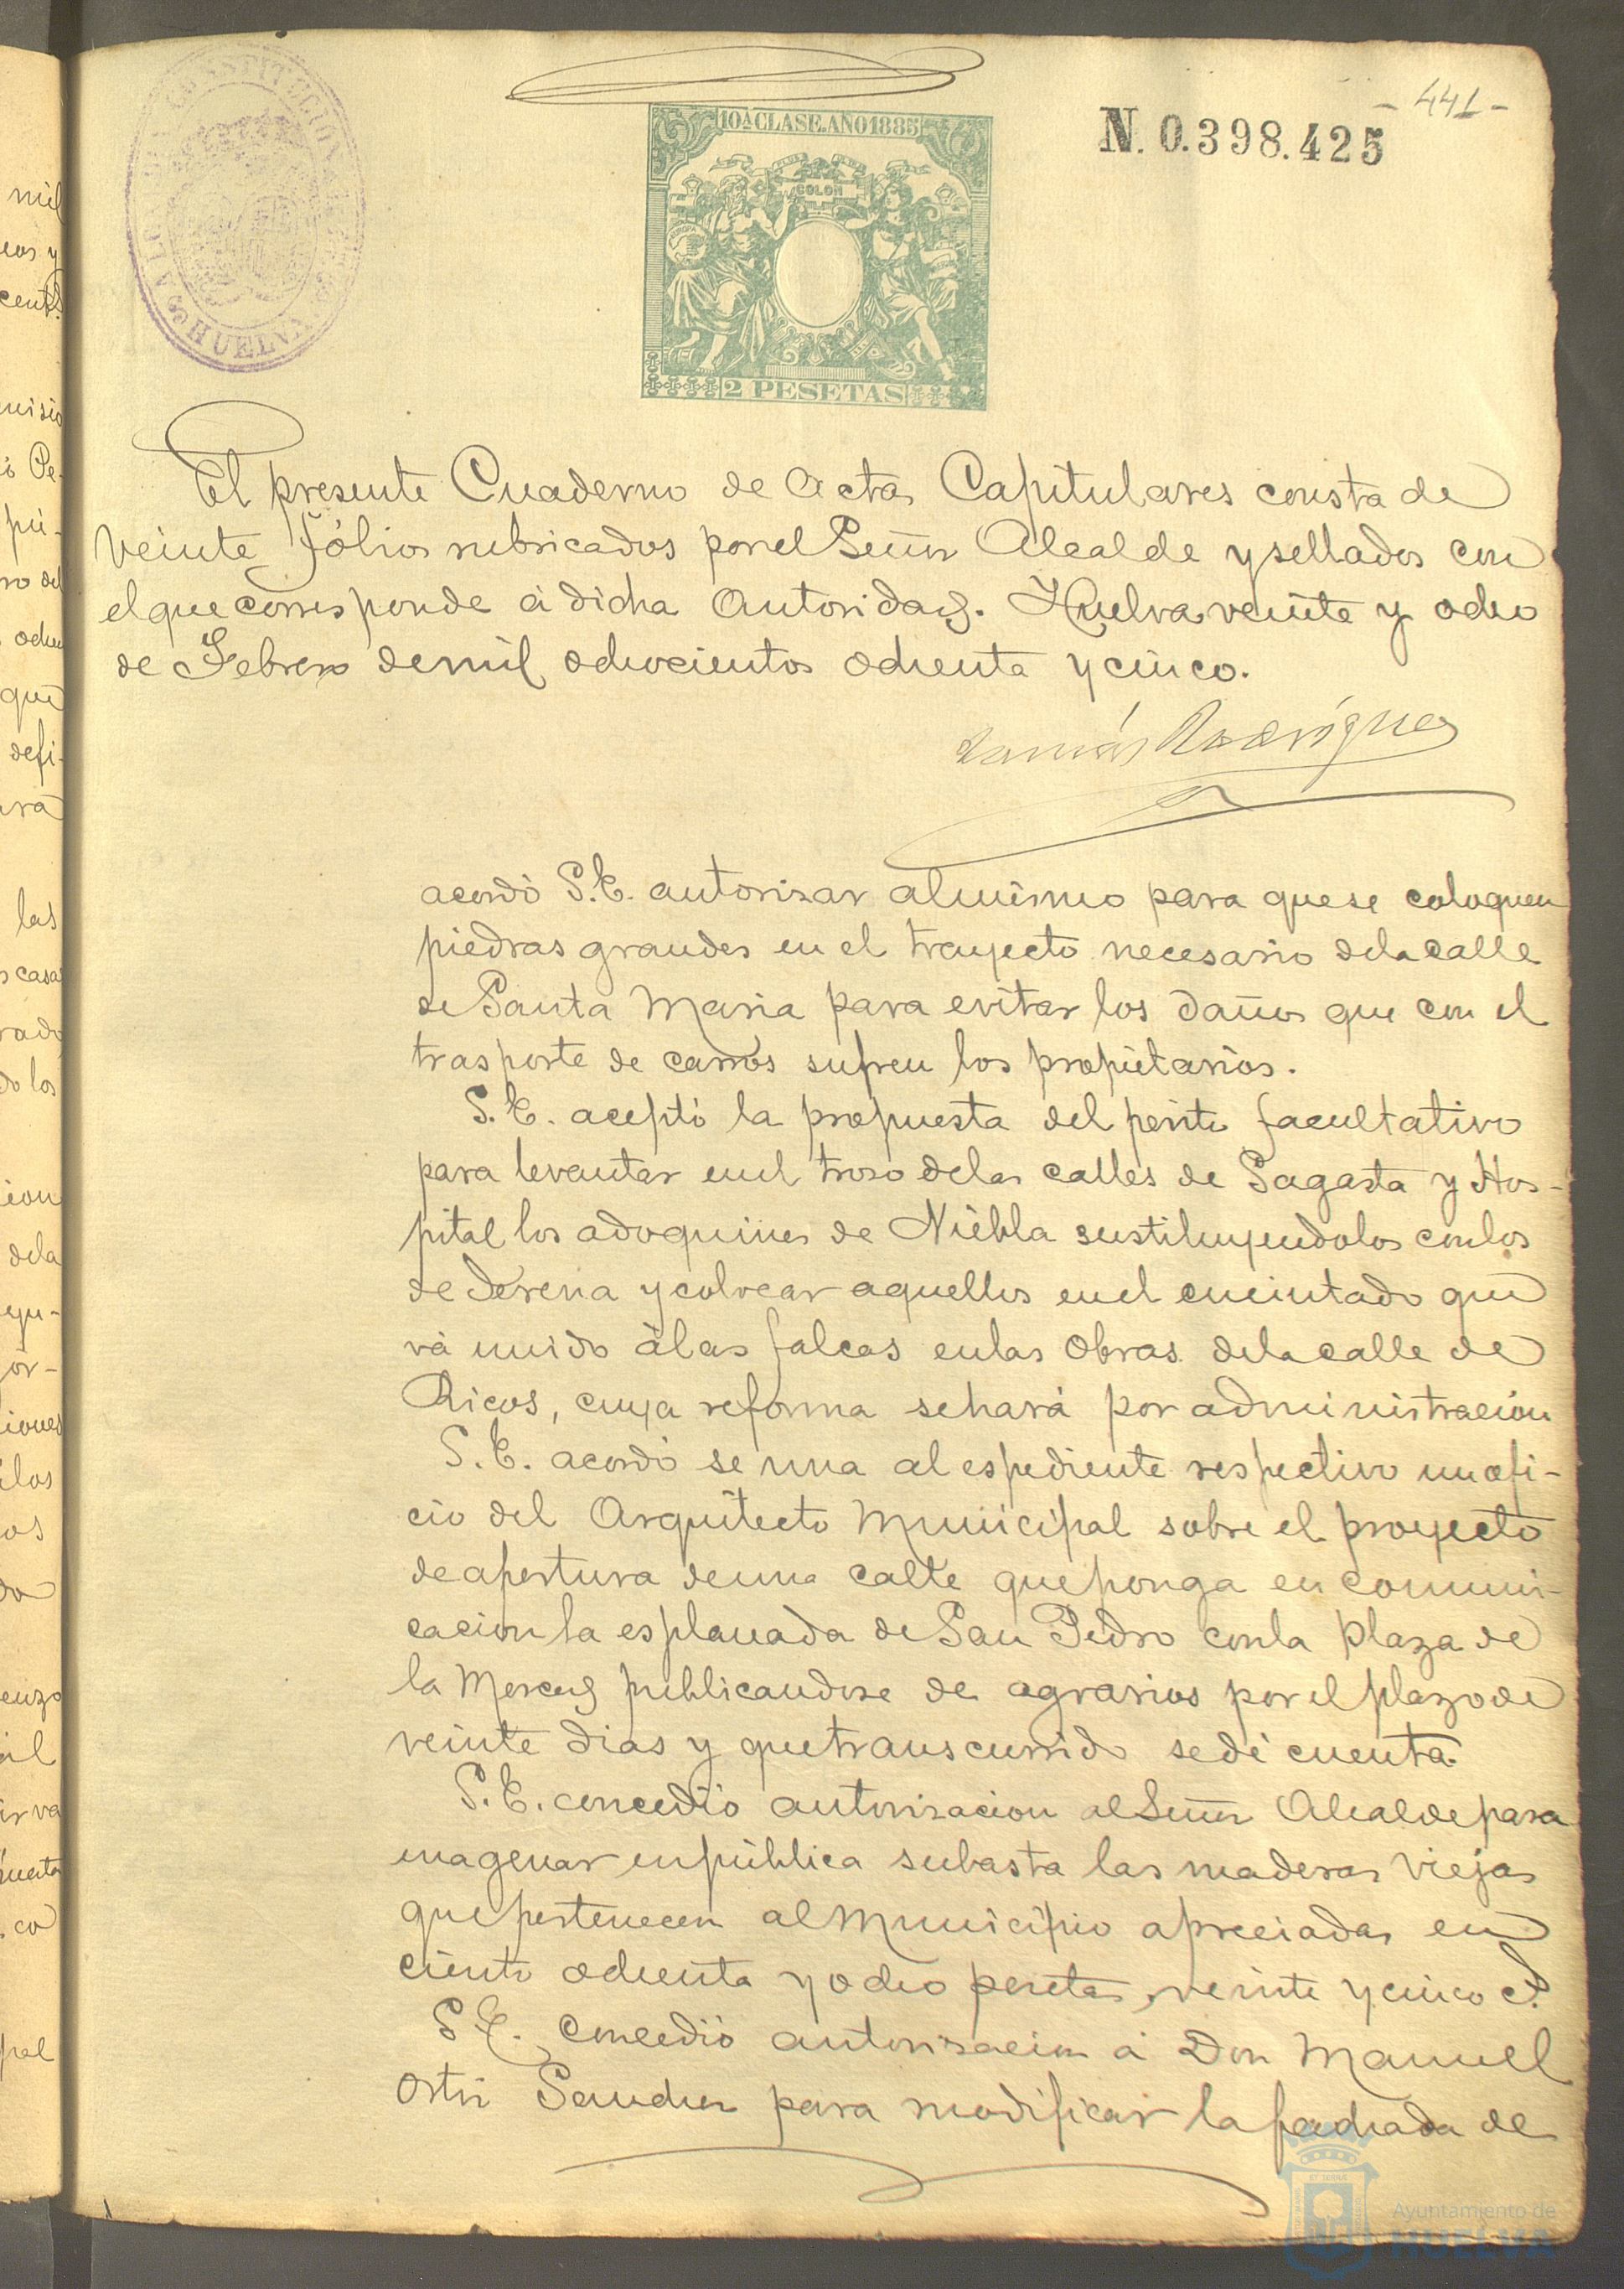 - 441 -
10ª CLASE. AÑO 1885
N. 0.398.425
COLON
2 PESETAS
HUELVA
El presente Cuaderno de Actas Capitulares consta de
veinte fólios rubricados por el Señor Alcalde y sellados con
el que corresponde á dicha Autoridad. Huelva veinte y ocho
de Febrero de mil ochocientos ochenta y cinco.
Tomás Rodríguez
acordó S.E. autorizar al mismo para que se coloquen
piedras grandes en el trayecto necesario de la calle
de Santa Maria para evitar los daños que con el
trasporte de carros sufren los propietarios.
S.E. aceptó la propuesta del perito facultativo
para levantar en el troso de las calles de Sagasta y Hos-
pital los adoquines de Niebla sustituyendolos con los
de Gerena y colocar aquellos en el encintado que
vá unido á las falcas en las obras de la calle de
Ricos, cuya reforma se hará por administracion
S.E. acordó se una al espediente respectivo un ofi-
cio del Arquitecto Municipal sobre el proyecto
de apertura de una calle que ponga en comuni-
cacion la esplanada de San Pedro con la plaza de
la Merced publicandose de agrarios por el plazo de
veinte dias y que transcurrido se dé cuenta.
S.E. concedió autorizacion al Señor Alcalde para
enagenar en pública subasta las maderas viejas
que pertenecen al Municipio apreciadas en
ciento ochenta y ocho pesetas, veinte y cinco cs.
S.E. concedió autorizacion á Don Manuel
Ortiz Sanchez para modificar la fachada de
Ayuntamiento de
HUELVA